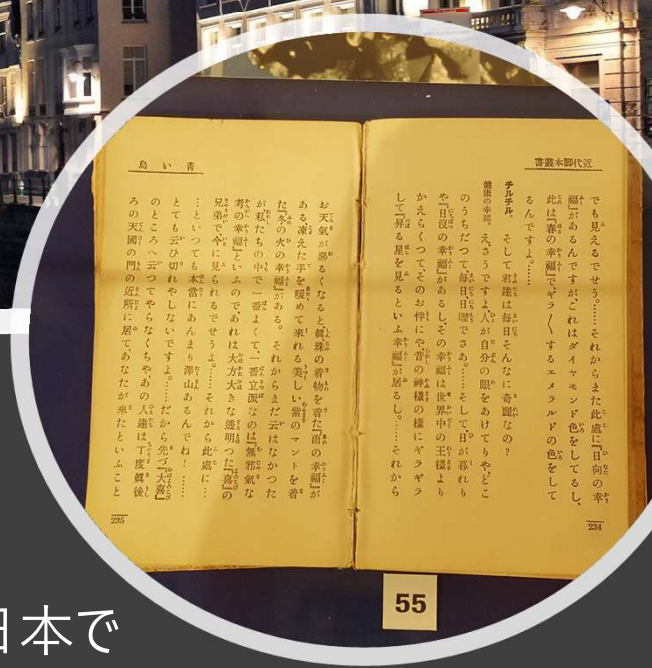 近代脚本叢書
でも見えるでせう。……それからまた此處に『日向の幸
福』があるんですが、これはダイヤモンド色をしてるし、
此は『春の幸福』で、ギラ〱するエメラルドの色をして
るんですよ。……
チルチル。 そして君達は毎日そんなに奇麗なの?
健康の幸福。 え、さうですよ、人が自分の眼をあけてりや、どこ
のうちだつて毎日日曜でさあ。……そして日が暮れり
や『日没の幸福』があるし、その幸福は世界中の王様より
かえらくつて、そのお伴にや昔の神様の様にギラギラ
して『昇る星を見るといふ幸福』が居るし。……それから
234
青い鳥
お天氣が惡るくなると、眞珠の着物を着た『雨の幸福』が
ある凍えた手を暖めて来れる美しい紫のマントを着
た『冬の火の幸福』がある。それからまだ云はなかつた
が私たちの中で一番よくて、一番立派なのは『無邪氣な
考の幸福』といふので、あれは大方大きな透明つた『喜』の
兄弟で、今に見られるでせうよ。……それから此處に…
…といつても本當にあんまり澤山あるんでね!……
とても云ひ切れやしないですよ。……だから先づ『大喜』
のところへ云つてやらなくちや、あの人達は丁度眞後
ろの天國の門の近所に居て、あなたが来たといふこと
235
55
日本で